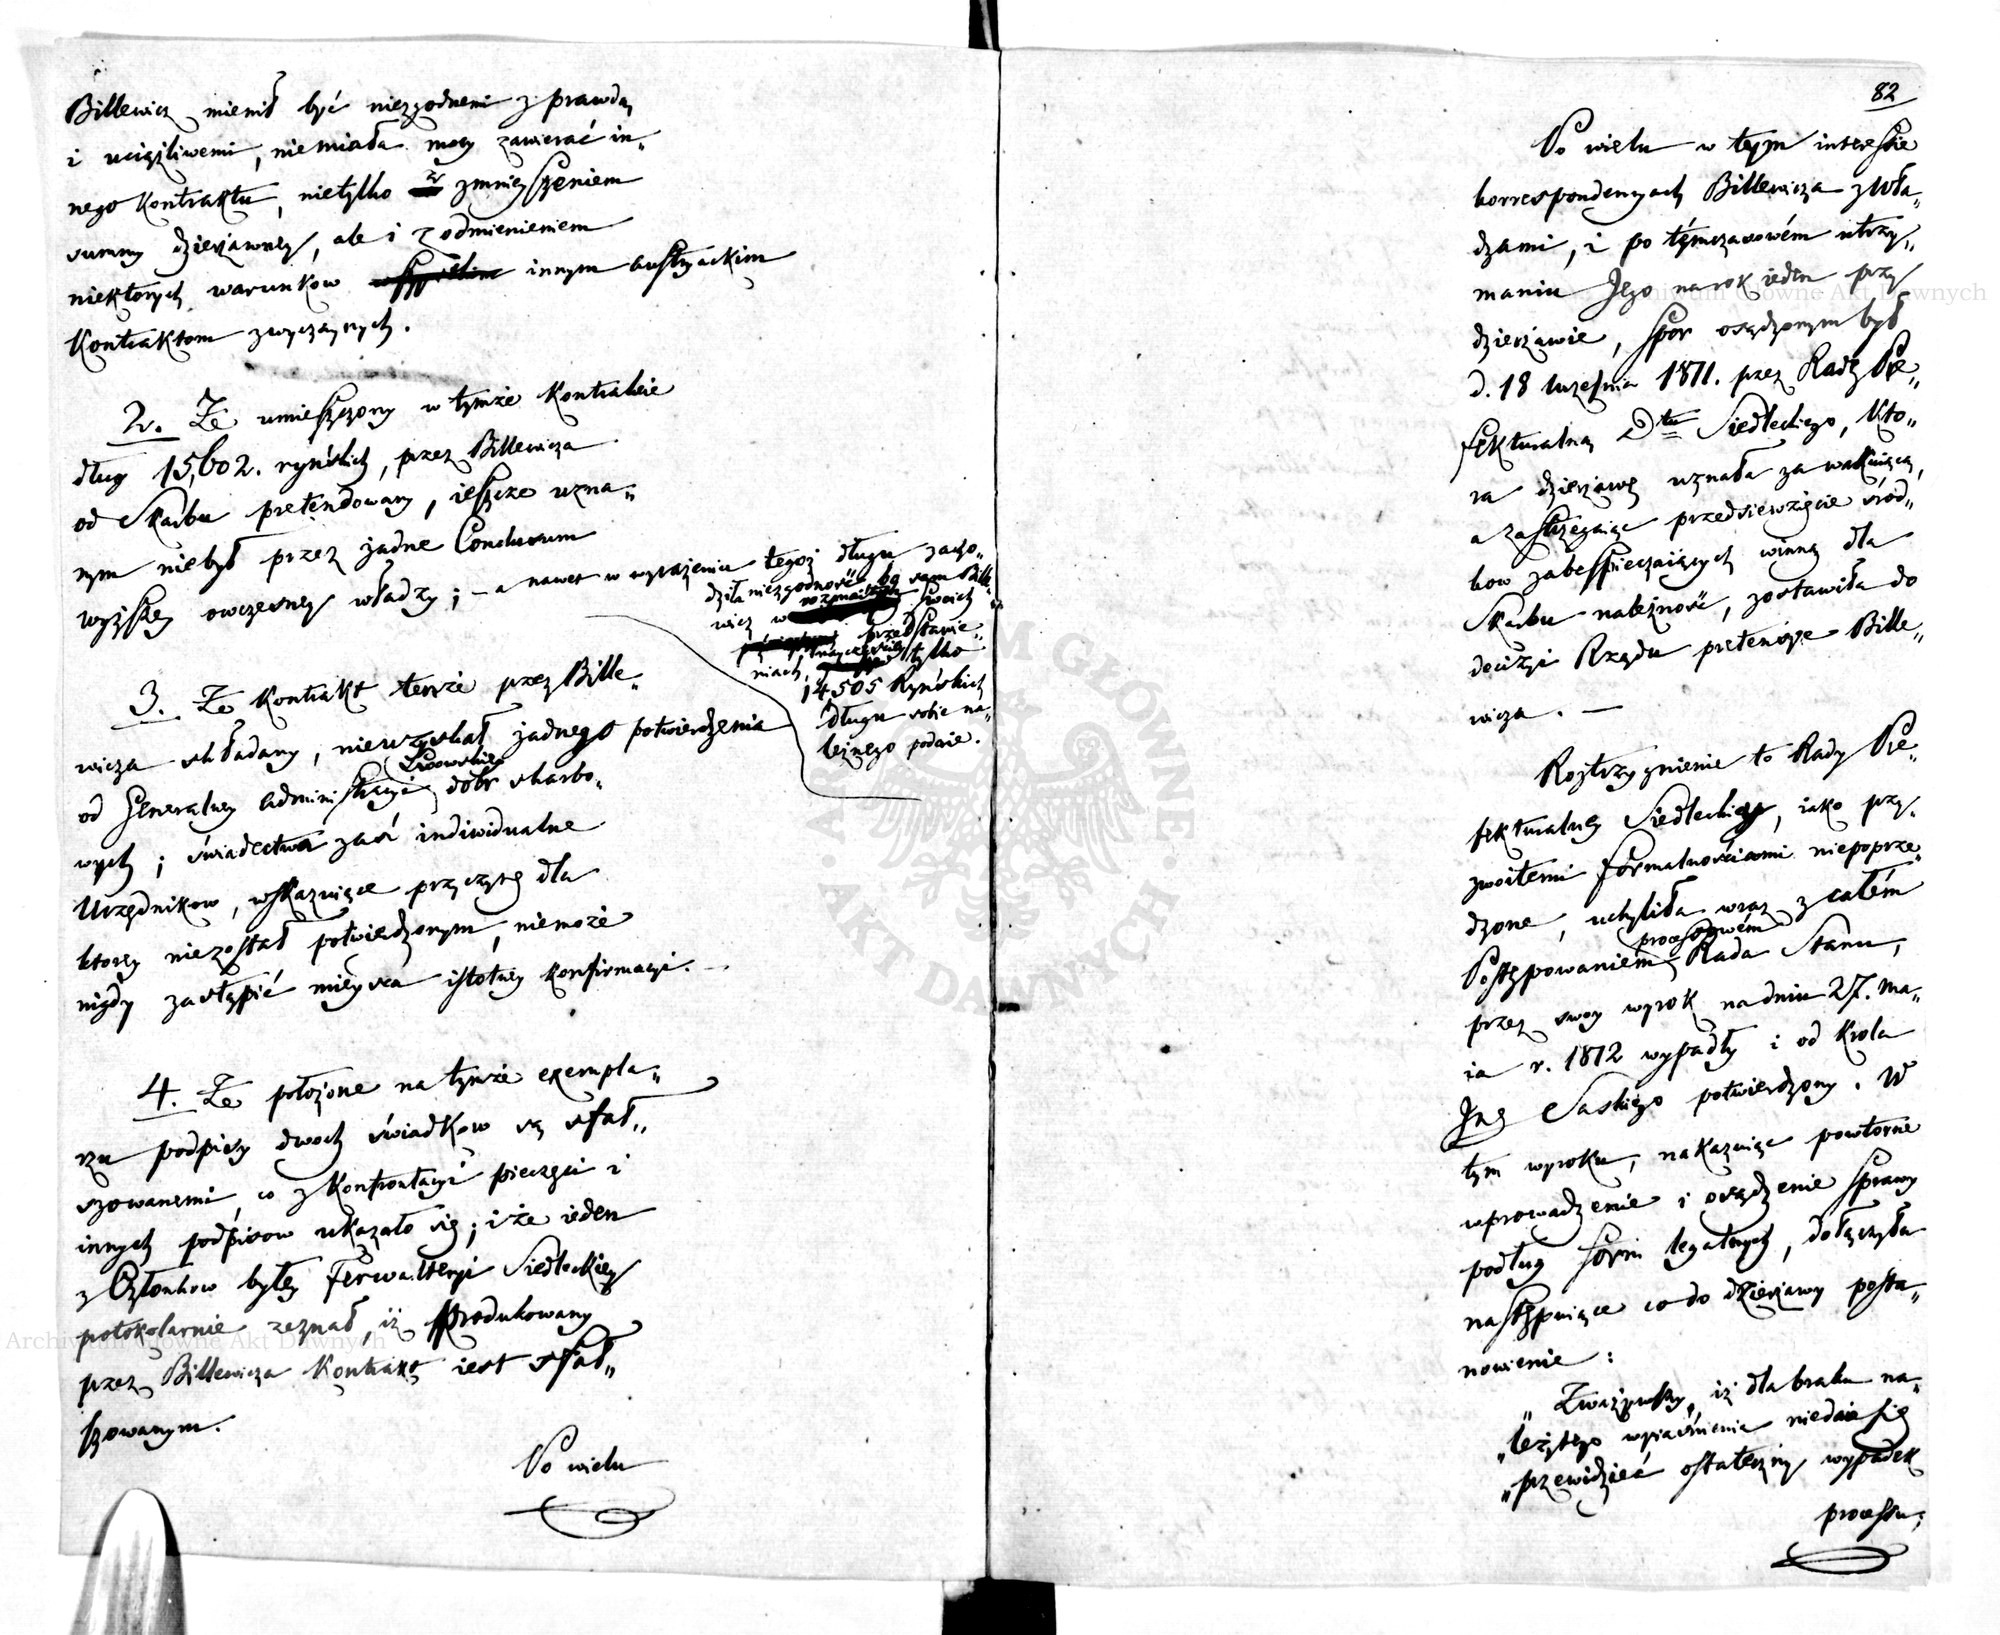 Billewicz mienił być niezgodnemi z prawdą
i uciążliwemi, niemiała mocy zawierać in„
nego kontraktu, nietylko ze zmnieyszeniem
summy dzierżawney, ale i z odmienieniem
niektorych warunkow innym austryackim
Kontraktom zwyczaynych.
2. Że umieszczony w tymże Kontrakcie
dług 15,602. ryńskich, przez Billewicza
od Skarbu pretendowany, ieszcze uzna„
nym niebył przez żadne Conclusum
wyższey owczesney władzy; – a nawet w wyrażeniu tegoż długu zacho„
dziła niezgodność, bo sam Bille„
wicz w rozmaitych swoich
przedstawie„
niach, tylko
14505 Ryńskich
długu sobie na„
leżnego podaie.
3. Że Kontrakt tenże przez Bille„
wicza składany, nieuzyskał żadnego potwierdzenia
od Generalney Administracyi Lwowskiey dobr skarbo„
wych; świadectwa zaś indiwidualne
Urzędnikow, wskazuiące przyczynę dla
ktorey niezostał potwierdzonym, niemoże
nigdy zastąpić mieysca istotney konfirmacyi. –
4. Że położone na tymże exempla„
rzu podpisy dwoch świadkow są sfał„
szowanemi, co z Konfrontacyi pieczęci i
innych podpisow ukazało się; i że ieden
z Członkow byłey Ferwalteryi Siedleckiey
potokolarnie zeznał, iż produkowany
przez Billewicza Kontrakt iest sfał„
szowanym.
Po wielu
82
Po wielu w tym interessie
korrespondencyach Billewicza z Wła„
dzami, i po tymczasowém utrzy„
maniu Jego na rok ieden przy
dzierżawie, spór osądzonym był
d. 18 Września 1811. przez Radę Pre„
fekturalną Dttu Siedleckiego, kto„
ra dzierżawę uznała za wakuiącą,
a zastrzegaiąc przedsięwzięcie środ„
kow zabespieczaiących winną dla
Skarbu należność, zostawiła do
decizyi Rządu pretensye Bille„
wicza. –
Roztrzygnienie to Rady Pre„
fekturalney Siedleckiey, iako przy„
zwoitemi formalnościami niepoprze„
dzone, uchyliła wraz z całém
Postępowaniem processowém Rada Stanu,
przez swoy wyrok na dniu 27. Ma„
ia r. 1812 wypadły i od Krola
Jnę Saskiego potwierdzony. W
tym wyroku, nakazuiąc powtorne
wprowadzenie i osądzenie sprawy
podług form legalnych, dołączyła
następuiące co do dzierżawy posta„
nowienie:
„Zważywszy, iż dla braku na„
„leżytego wyiaśnienia niedaie się
„przewidzieć ostateczny wypadek
processu;